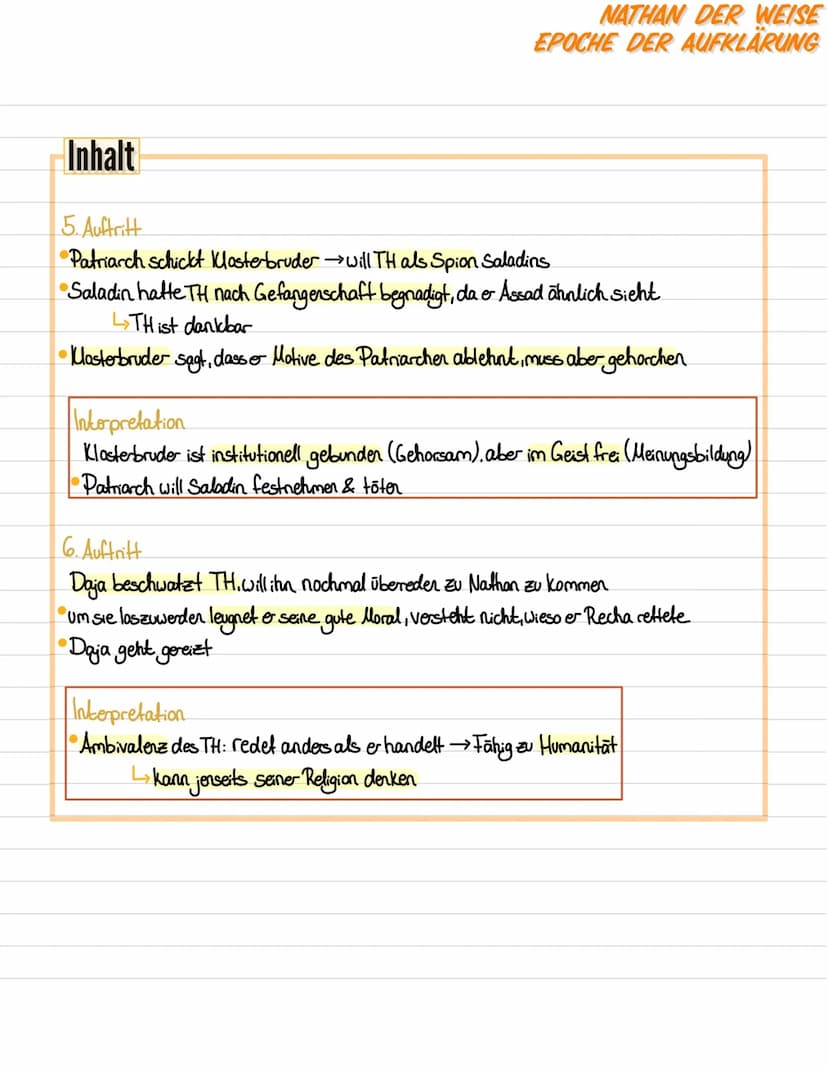 NATHAN DER WEISE
EPOCHE DER AUFKLÄRUNG
Inhalt
5. Auftritt
•Patriarch schickt Klosterbruder → will TH als Spion Saladins
•Saladin hatte TH nach Gefangenschaft begnadigt, da er Assad ähnlich sieht
↳ TH ist dankbar
•Klosterbruder sagt, dass er Motive des Patriarchen ablehnt, muss aber gehorchen
Interpretation
Klosterbruder ist institutionell gebunden (Gehorsam), aber im Geist frei (Meinungsbildung)
•Patriarch will Saladin festnehmen & töten
6. Auftritt
Daja beschwatzt TH, will ihn nochmal überreden zu Nathan zu kommen
•um sie loszuwerden leugnet er seine gute Moral, versteht nicht, wieso er Recha rettete
•Daja geht gereizt
Interpretation
•Ambivalenz des TH: redet anders als er handelt → Fähig zu Humanität
↳ kann jenseits seiner Religion denken